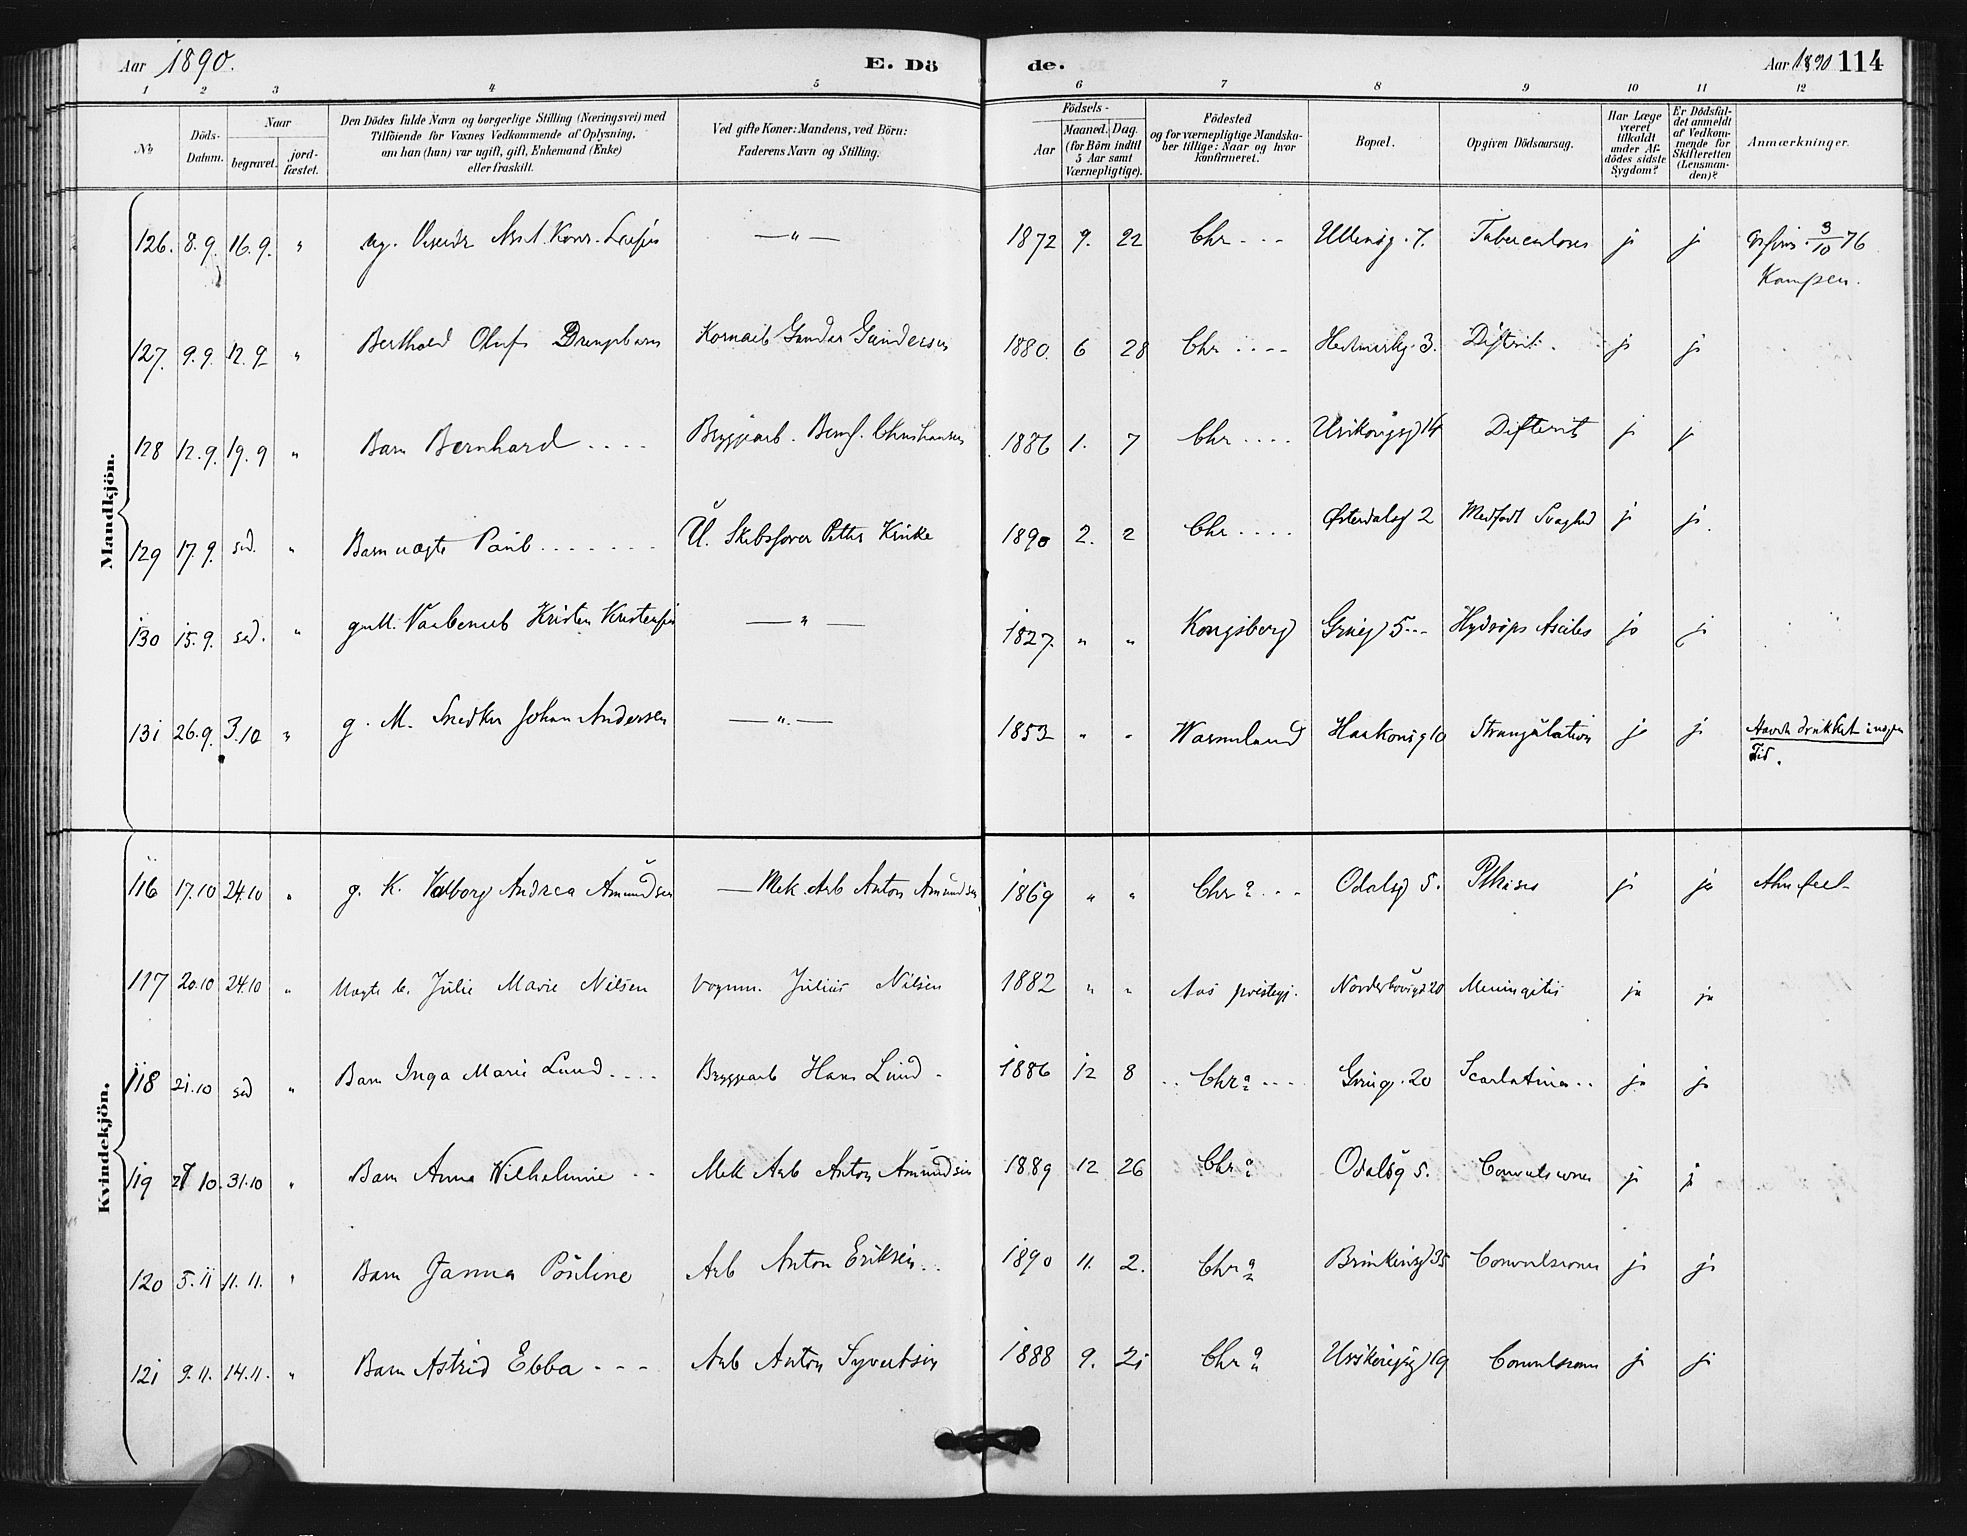 Aar 1890.
E. Dö
de.
Aar 1890 114
1 2 3 4 5 6 7 8 9 10 11 12
No
Döds-
Datum.
Naar
begravet.
jord-
fæstet.
Den Dödes fulde Navn og borgerlige Stilling (Næringsvei) med
Tilföiende for Voxnes Vedkommende af Oplysning,
om han (hun) var ugift, gift, Enkemand (Enke)
eller fraskilt.
Ved gifte Koner: Mandens, ved Börn:
Faderens Navn og Stilling.
Födsels-
Aar
Maaned. Dag.
(for Börn indtil
5 Aar samt
Værnepligtige).
Födested
og for værnepligtige Mandska-
ber tillige: Naar og hvor
konfirmeret.
Bopæl.
Opgiven Dödsaarsag.
Har Læge
været
tilkaldt
under Af-
dödes sidste
Sygdom?
Er Dödsfal-
det anmeldt
af Vedkom-
mende for
Skifteretten
(Lensman-
den)?
Anmærkninger.
Mandkjön.
126. 8.9. 16.9. " — " — 1872 9. 22 Chr - - - 7. Tuberculoses j j 3/10 76
Kampen.
127. 9.9. 12.9 " Berthold Oluf Gundersen 1880. 6 28 Chr . . . . Hedmarkg. 3. Difterit. j j
128 12.9. 19.9 " Barn Bernhard . . . . Bryggearb. Christiansen 1886 1. 7 Chr . . . . 14 Difterit j j
129 17.9. sd. " Barn uægte Paul . . . . . . . U. Petter 1890 2. 2 Chr . . . . Østerdalsg 2 Medfødt Svaghed j j
130 15.9. sd. " gM. Kristen Kristensen — " — 1827. " " Kongsberg 5 - - Hydrops Ascites ja j
131 26.9. 3.10 " g. M. Snedker Johan Andersen — " — 1853 " " Warmland Haakonsg 10 Strangulation j j drukket
Tid.
Kvindekjön.
116 17.10 24.10 " g. K. Valborg Andrea Amundsen — Mek. Arb Anton Amundsen 1869 " " Chr a . . . Odalsg 5. Pthisis j ja
117 20.10 24.10 " Uægte b. Julie Marie Nilsen Vognm. Julius Nilsen 1882 " " Aas prestegj. 20 Meningitis ja ja
118 21.10 sd " Barn Inga Marie Lund . . . . Bryggearb Hans Lund - 1886 12 8 . . Chr a . . . . 20 Scarlatina . . ja ja
119 27 10. 31.10 " Barn Anna Wilhelmine - - Mek Arb Anton Amundsen 1889 12 26 Chr a Odalsg 5. Convulsiones j j
120 5.11 11.11. " Barn Janna Pauline Arb Anton Eriksen . . 1890 11. 2. Chr a 35 Convulsiones j j
121 9.11. 14.11. " Barn Astrid Ebba - - - Arb Anton Syvertsen 1888 9. 21 Chr a 19 Convulsiones j j